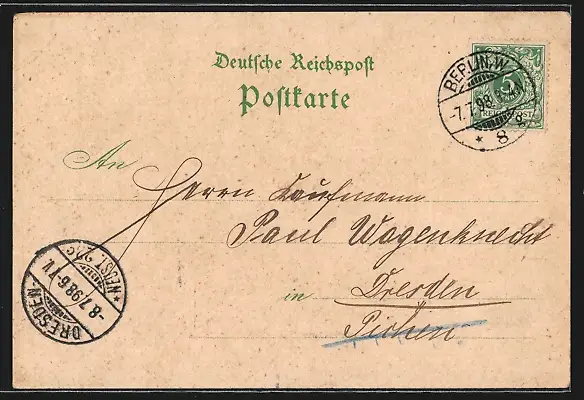 Deutsche Reichspost
Postkarte
5
REICHSPOST
BERLIN.W
-7.7.98
* 8
8
An
Herrn Kaufmann
Paul Wagenknecht
in Dresden
DRESDEN-
-8.7.98.6-7V.
*NEUST.